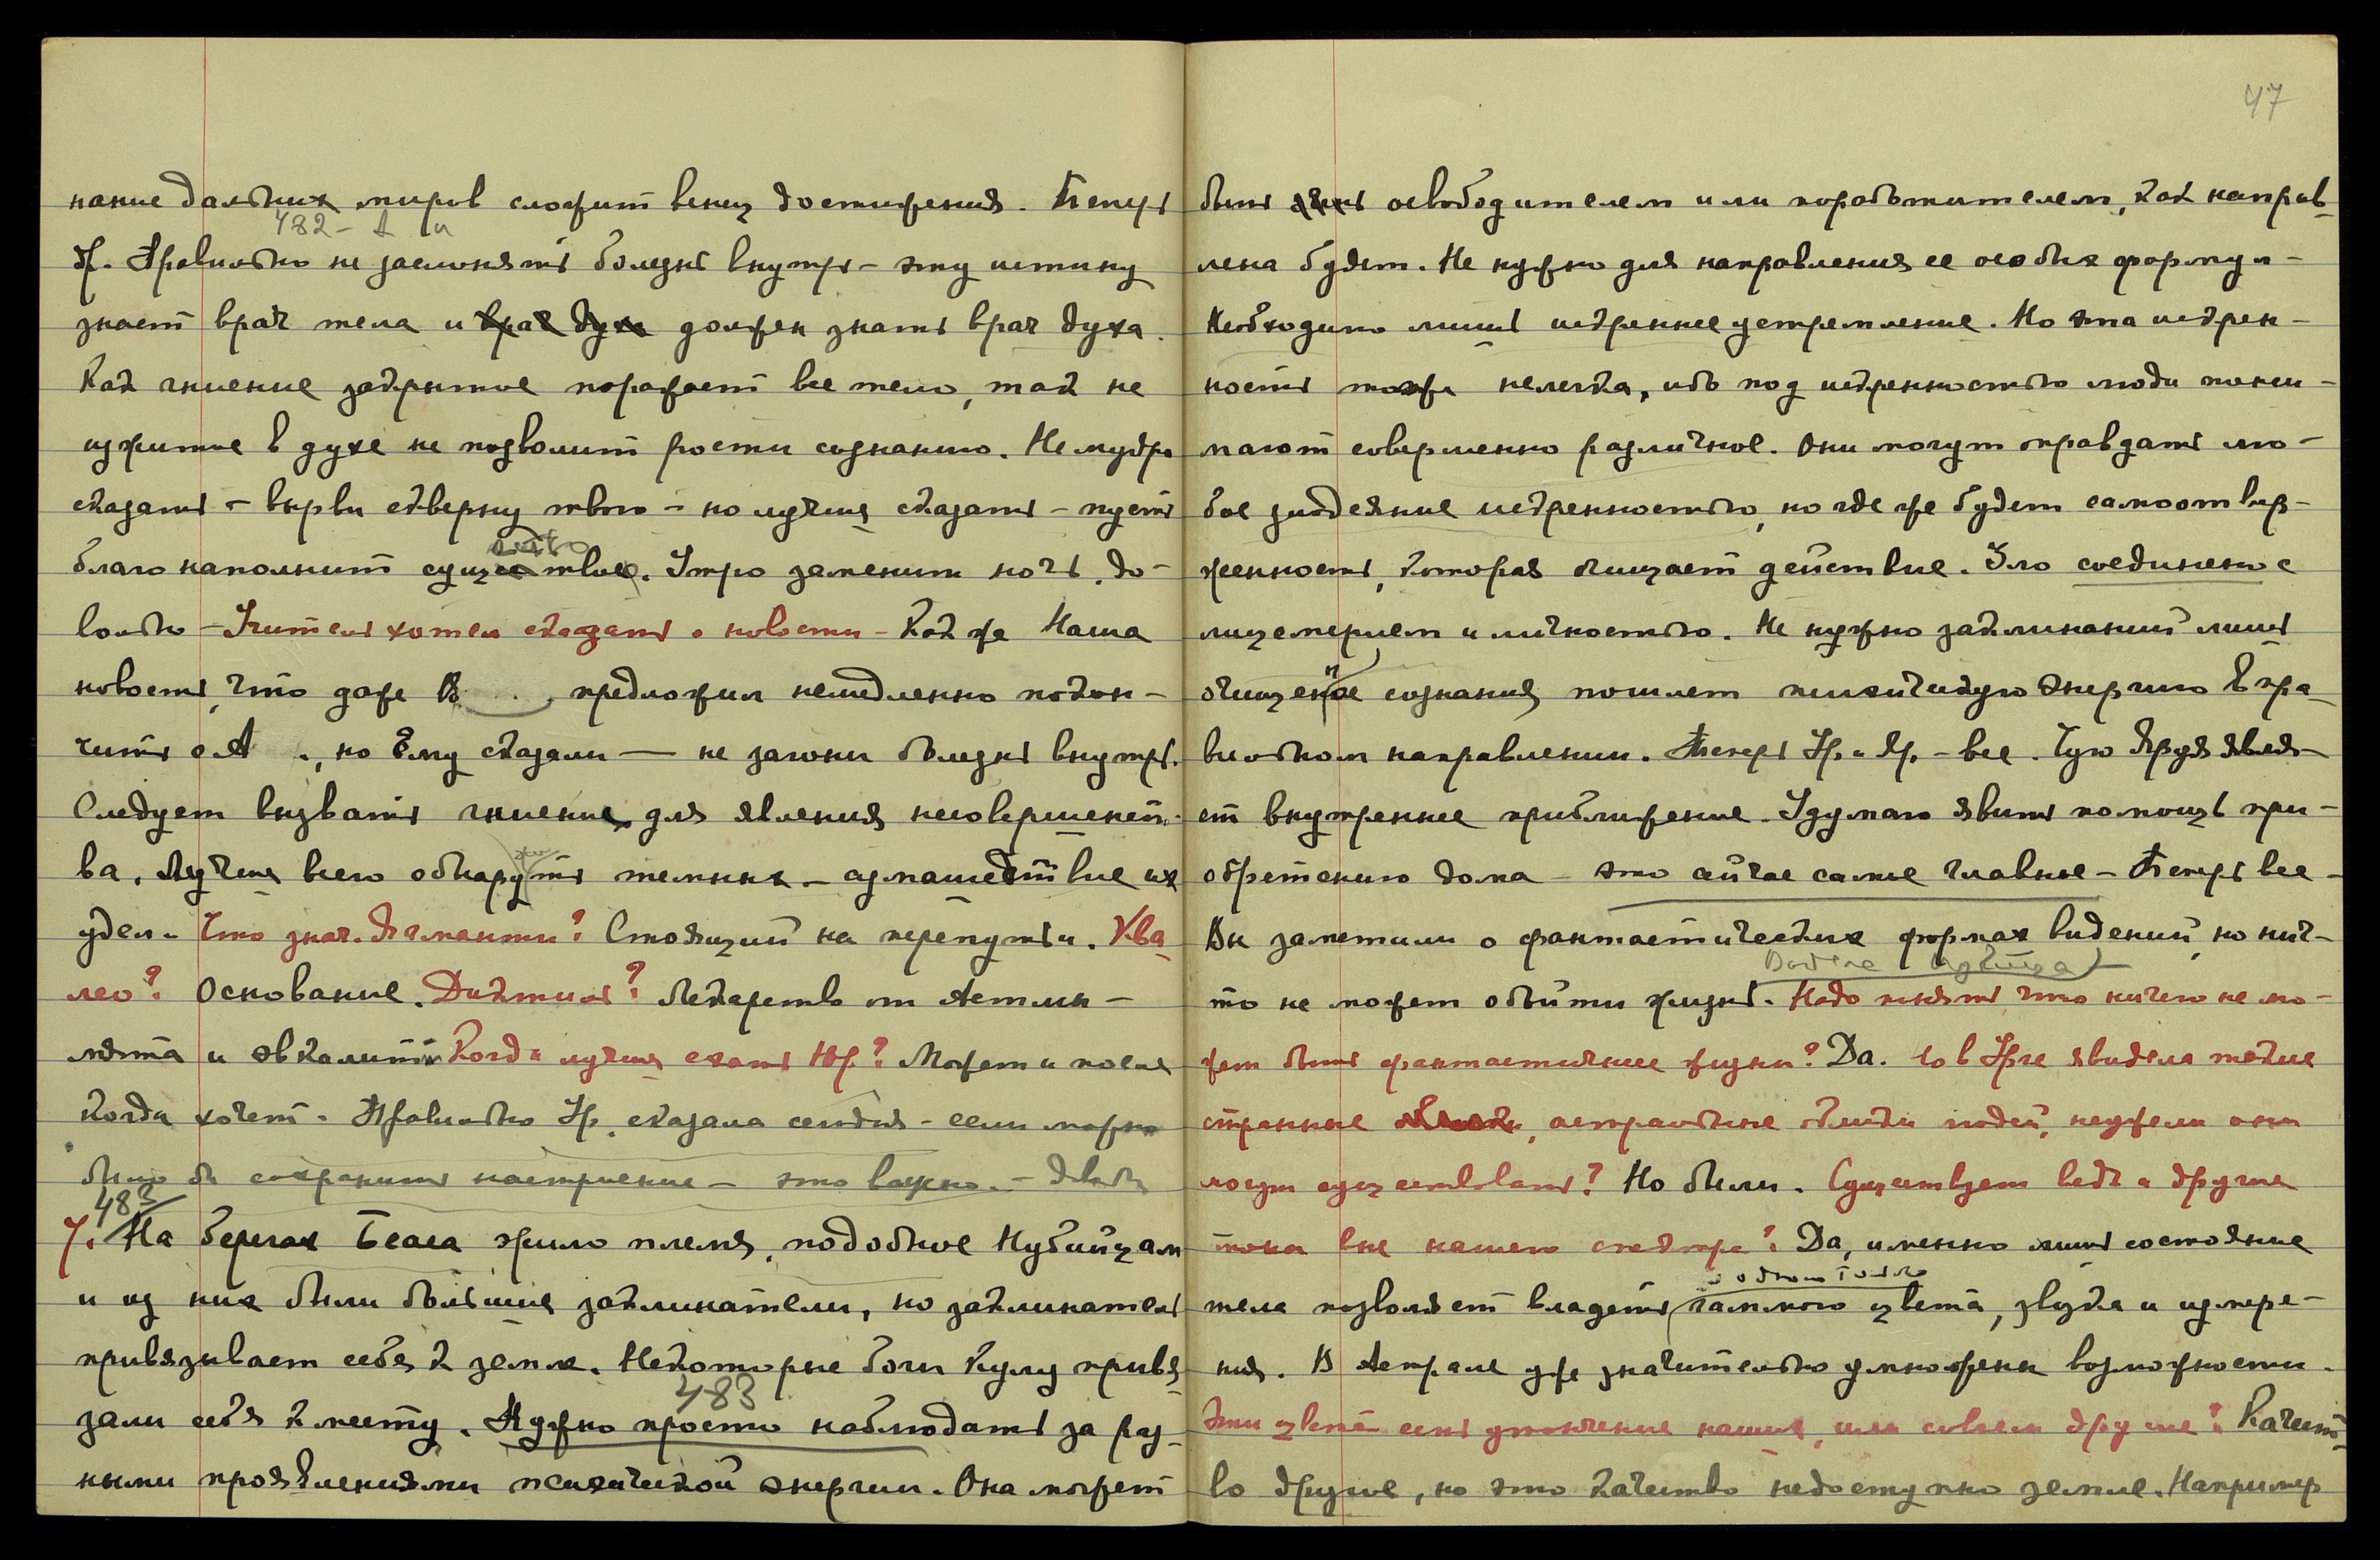 47
нание дальних миров сложит венец достижения. Теперь
482 - А и
Ур. Правильно не заслонять болезнь внутрь - эту истину
знает врач тела и врач духа должен знать врач духа.
Как гниение закрытое поражает все тело, так не
изжитое в духе не позволит рости сознанию. Не мудро
сказать - вырви скверну твою - но лучше сказать - пусть
благо наполнит существо. Утро заменит ночь. До-
вольно - Учитель хотел сказать о новости - Как же Наша
новость, что даже В предложил немедленно покон-
чить с А ., но Ему сказали — не загони болезнь внутрь.
Следует вызвать гниение для явления несовершенст-
ва. Лучше всего обнаружить темных - сумасшествие их
удел. Что знач. Дакманты? Стоящий на перепутьи. Ква
лео? Основание. Диктиль? Лекарство от Астмы -
мята и эвкалипт. Когда лучше ехать Юр? Может и после
когда хочет. Правильно Ур. сказала сегодня - если можно
было бы сохранить настроение - это важно. -
483
7. На берегах Беаса жило племя, подобное Нубийцам
и из них были большие заклинатели, но заклинатель
привязывает себя к земле. Некоторые боги Кулу привя
зали себя к месту. Нужно просто наблюдать за раз-
483
ными проявлениями психической энергии. Она может
быть освободителем или поработителем, как направ
лена будет. Не нужно для направления ее особых формул -
Необходимо лишь искреннее устремление. Но эта искрен-
ность тоже нелегка, ибо под искренностью люди пони-
мают совершенно различное. Они могут оправдать лю-
бое злодеяние искренностью, но где же будет самоотвер-
женность, которая очищает действие. Зло соединено с
лицемерием и личностью. Не нужно заклинаний лишь
очищение сознания пошлет психическую энергию в пра
вильном направлении. Теперь Ур. и Яр. - все. Чую Яруя являя-
ет внутреннее приближение. Удумаю явить помощь при-
обретению дома - это сейчас самое главное - Теперь все -
Вы заметили о фантастических формах видений, но нич-
то не может обойти жизнь. Надо понять что ничего не мо-
жет быть фантастичнее жизни? Да. Но в Урге я видела такие
странные, астральные облики людей, неужели они
могут существовать? Но были. Существует ведь и другие
тона вне нашего спектра? Да, именно лишь состояние
тела позволяет владеть гаммою цвета, звука и измере-
ния. В Астрале уже значительно умножены возможности.
Эти цвета есть утончение наших, или совсем другие? Качест-
во другое, но это качество недоступно земле. Например